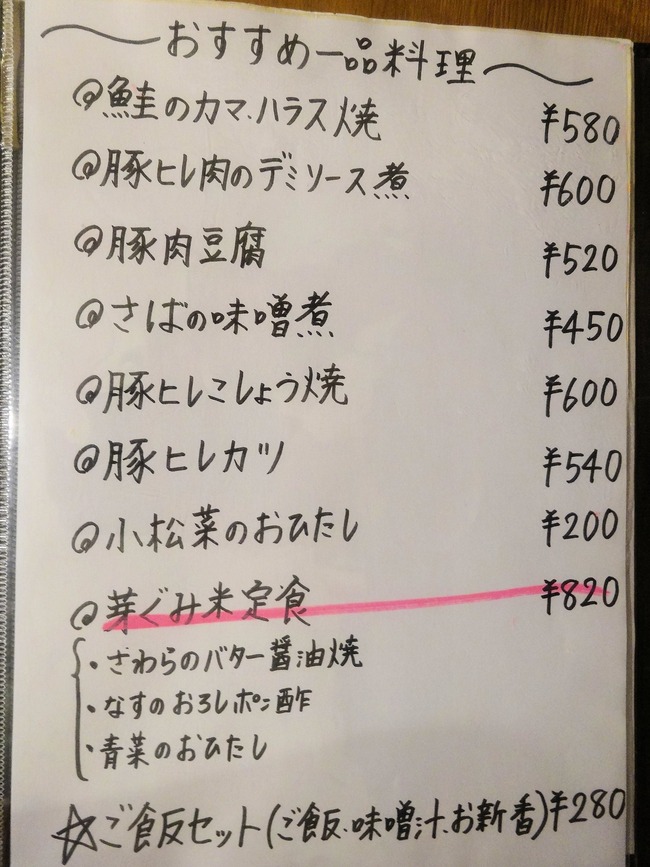 おすすめ一品料理
鮭のカマ、ハラス焼 ¥580
豚ヒレ肉のデミソース煮 ¥600
豚肉豆腐 ¥520
さばの味噌煮 ¥450
豚ヒレこしょう焼 ¥600
豚ヒレカツ ¥540
小松菜のおひたし ¥200
芽ぐみ米定食 ¥820
・さわらのバター醤油焼
・なすのおろしポン酢
・青菜のおひたし
☆ご飯セット(ご飯、味噌汁、お新香)¥280